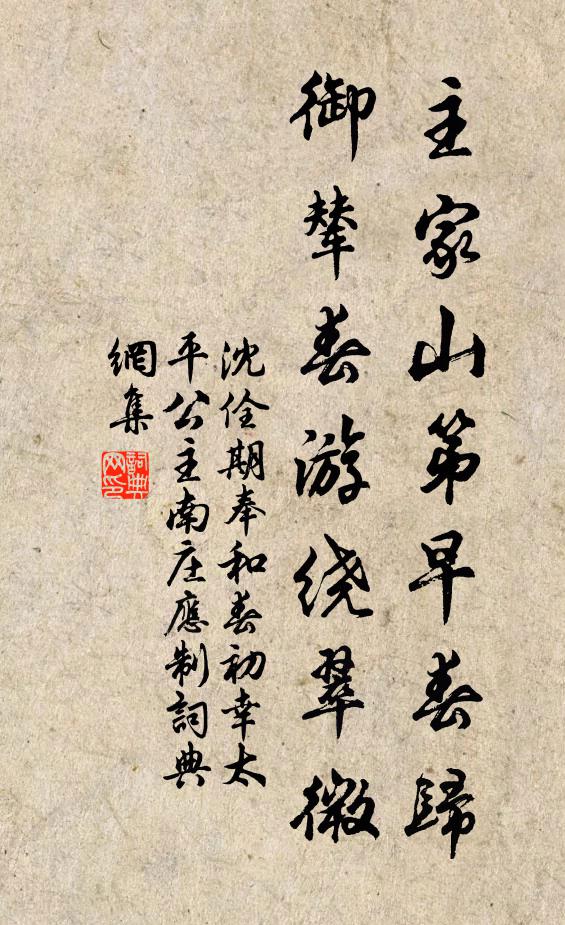 主家山第早春歸
御輦春游绕翠微
沈佺期奉和春初幸太
平公主南庄應制詞典
網集
詞典
网印